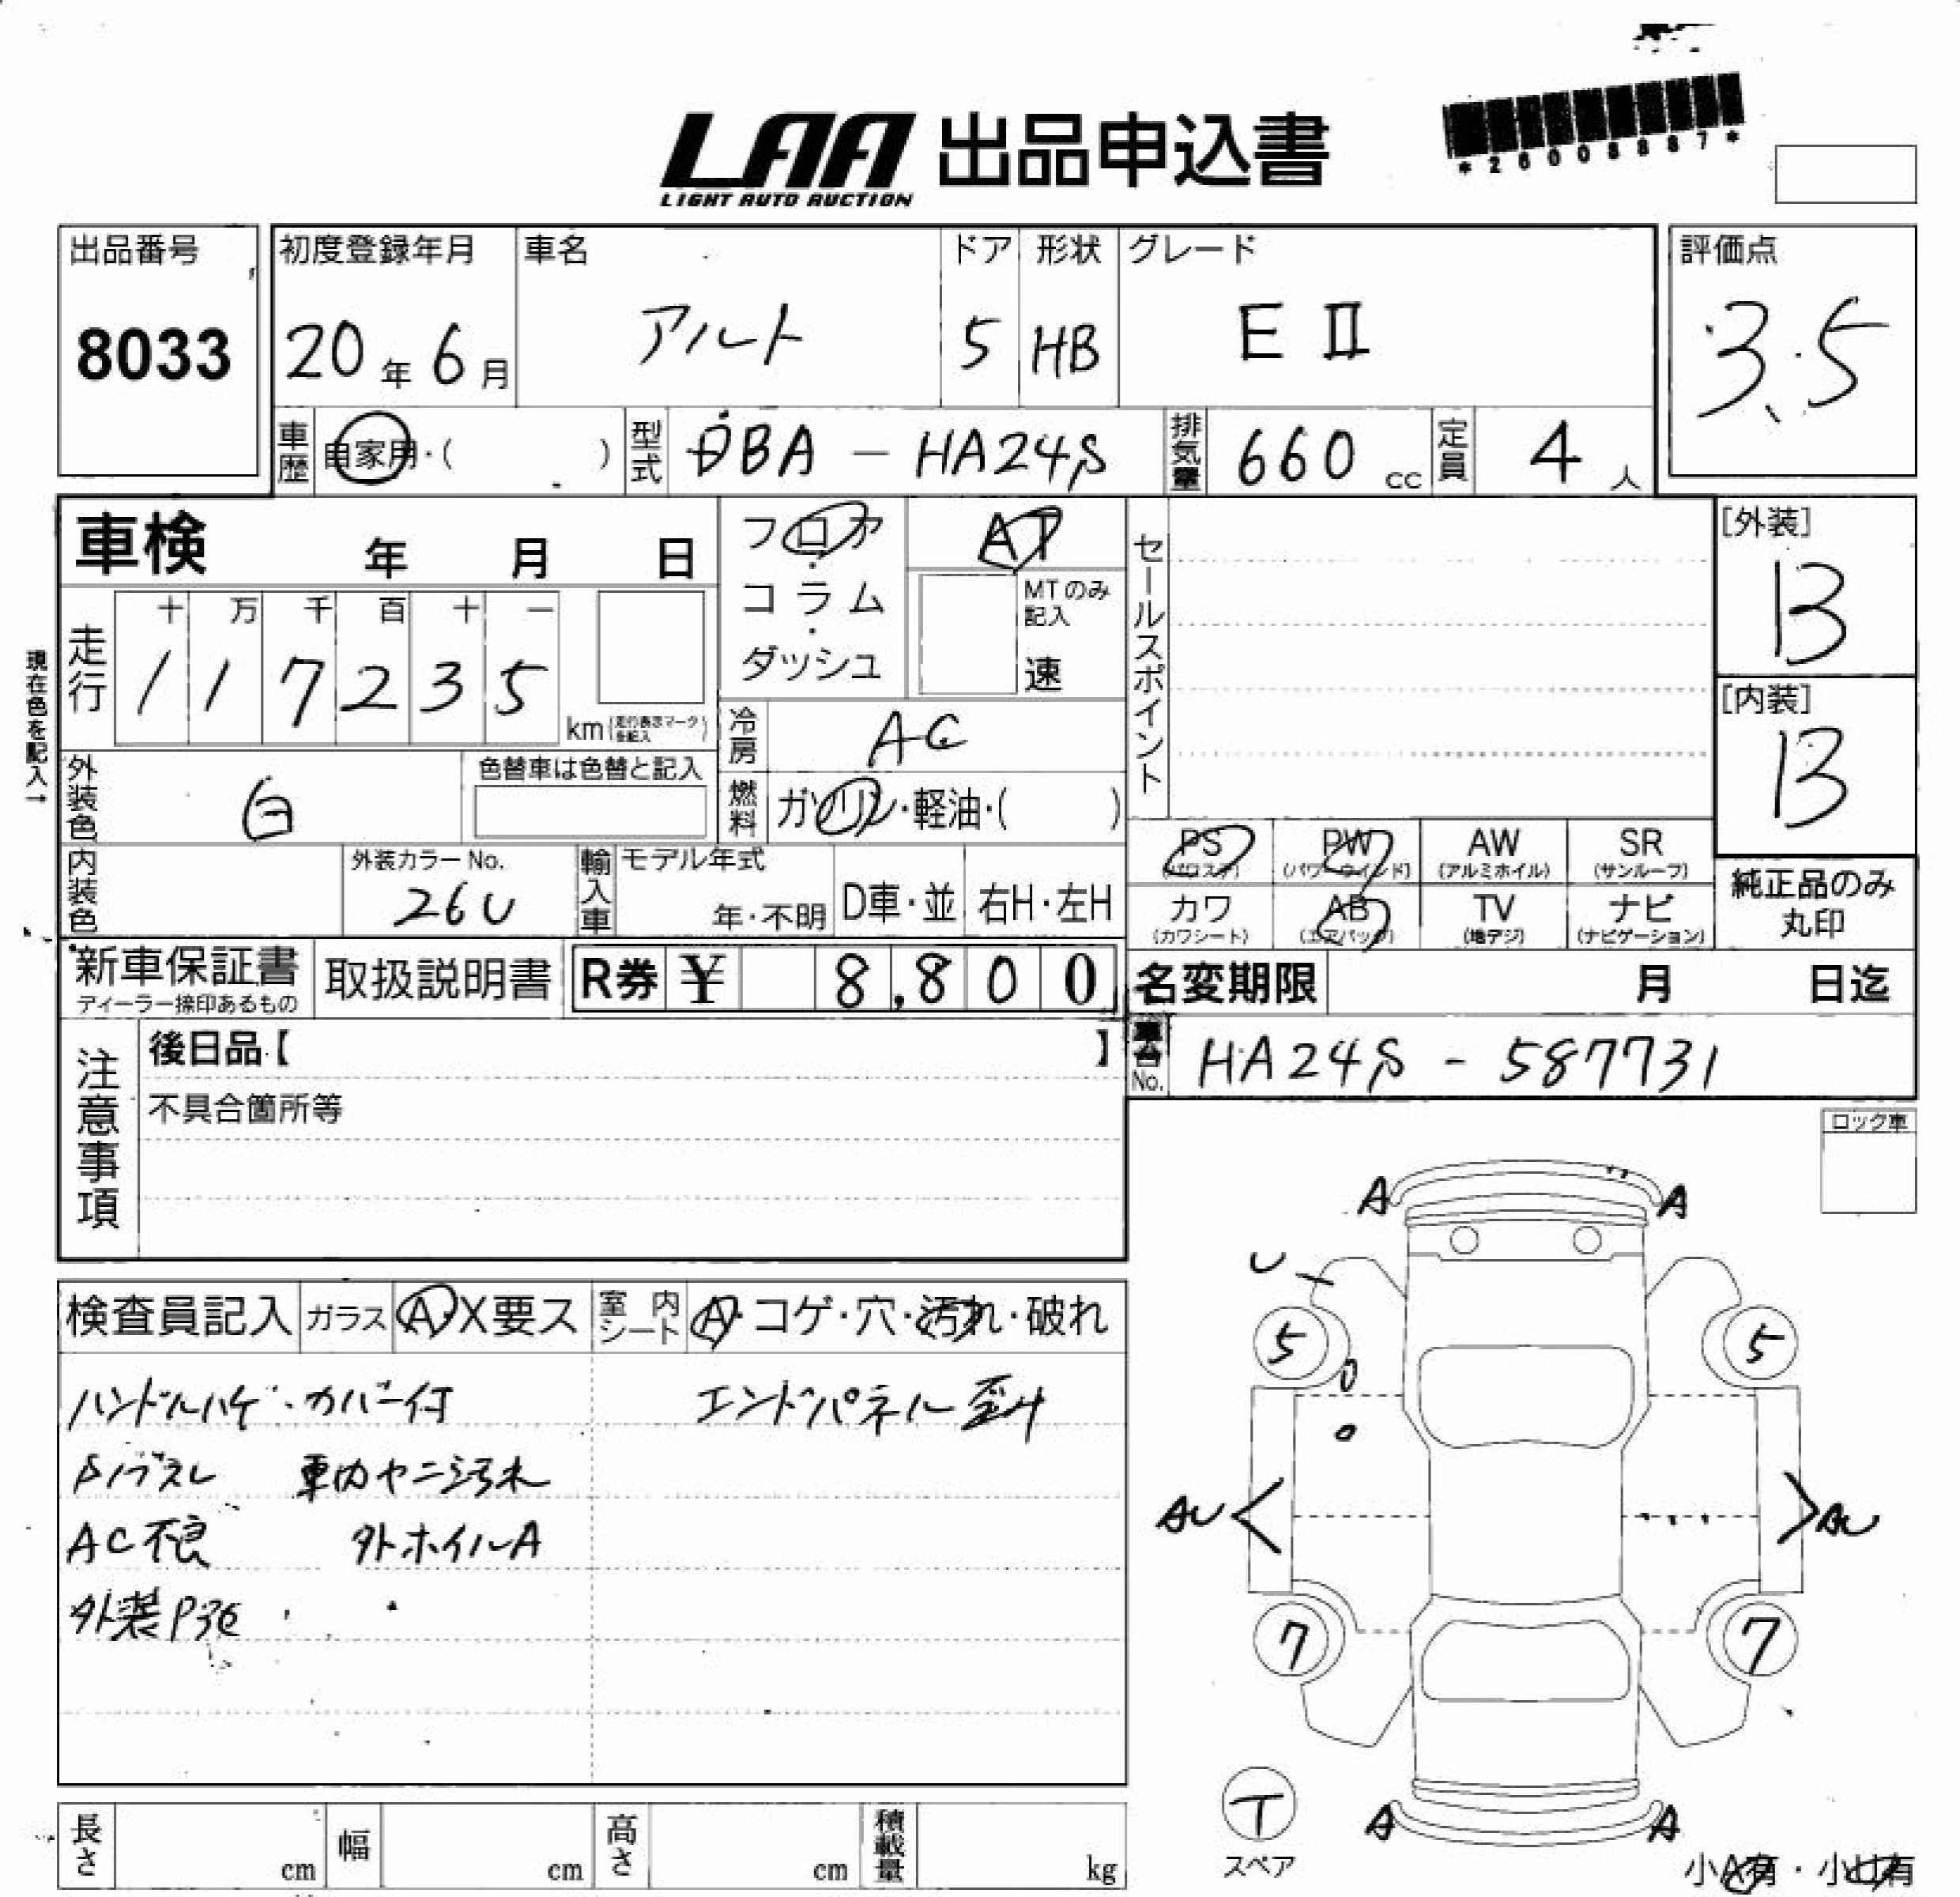 LAA 出品申込書
LIGHT AUTO AUCTION
*26008887*
出品番号
8033
初度登録年月
20年6月
車名
アルト
ドア
5
形状
HB
グレード
E II
評価点
3.5
車歴
自家用・( )
型式
DBA - HA24S
排気量
660 cc
定員
4 人
車検 年 月 日
フロア・コラム・ダッシュ
AT
MTのみ記入
速
セールスポイント
[外装]
B
[内装]
B
現在色を記入→
走行
十 万 千 百 十 一
1 1 7 2 3 5
km(走行表示マークを記入)
冷房
AC
外装色
白
色替車は色替と記入
燃料
ガソリン・軽油・( )
PS AW SR
PW
(パワステ) (パワーウインド) (アルミホイル) (サンルーフ)
カワ AB TV ナビ
(カワシート) (エアバッグ) (地デジ) (ナビゲーション)
純正品のみ
丸印
内装色
外装カラーNo.
26U
輸入車
モデル年式
年・不明
D車・並
右H・左H
新車保証書
ディーラー捺印あるもの
取扱説明書
R券 ¥ 8,800
名変期限 月 日迄
車台No.
HA24S - 587731
注意事項
後日品【 】
不具合箇所等
ロック車
検査員記入
ガラス
A・X要ス
室内シート
A・コゲ・穴・汚れ・破れ
ハンドルハゲ・カバー付
エンドパネル歪み
車内ヤニ汚れ
AC不良
外ホイルA
外装P
A A
U
5 5
AU AU
7 7
T
スペア
A A
小A有・小U有
長さ cm
幅 cm
高さ cm
積載量 kg